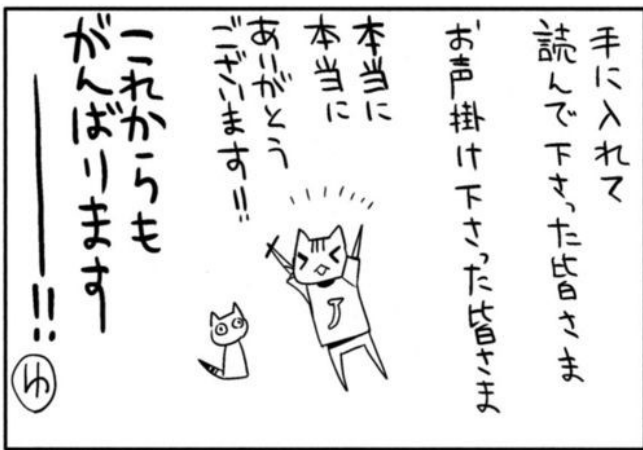 手に入れて
読んで下さった皆さま
お声掛け下さった皆さま
本当に
本当に
ありがとう
ございます!!
これからも
がんばります
――!!
ゆ
J